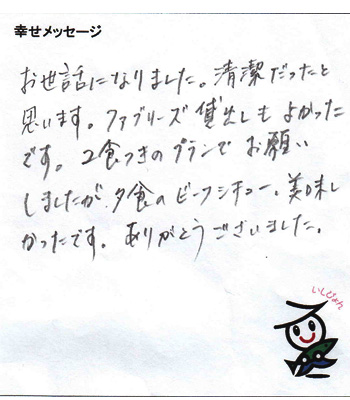 幸せメッセージ
お世話になりました。清潔だったと
思います。ファブリーズ貸出しもよかった
です。2食つきのプランでお願い
しましたが、夕食のビーフシチュー、美味し
かったです。ありがとうございました。
いしじょん